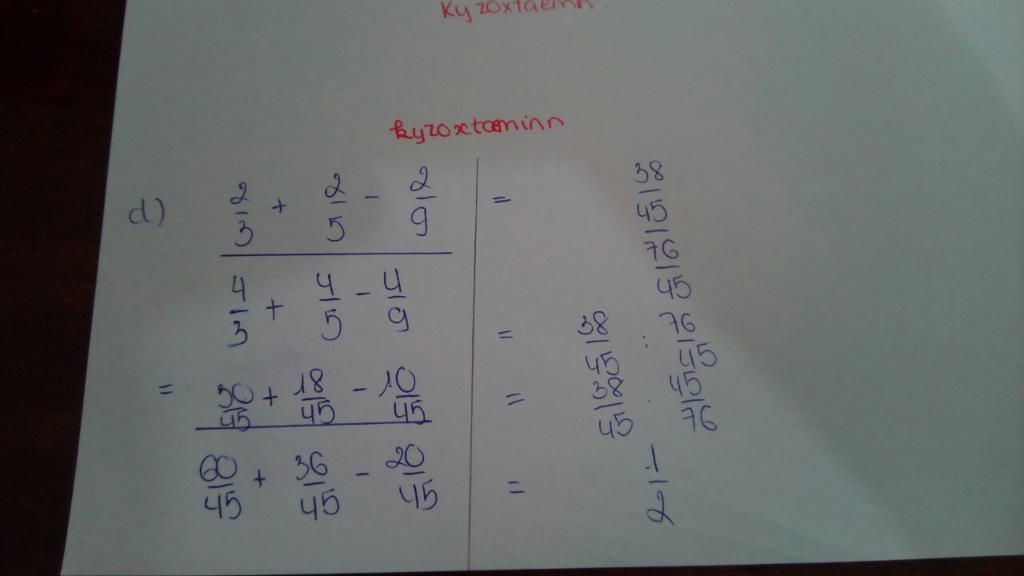 Kyzoxtaemn
kyzoxtaminn
d) 2/3 + 2/5 - 2/9
4/3 + 4/5 - 4/9
= 30/45 + 18/45 - 10/45
60/45 + 36/45 - 20/45
= 38/45
76/45
= 38/45 : 76/45
= 38/45 . 45/76
= 1/2